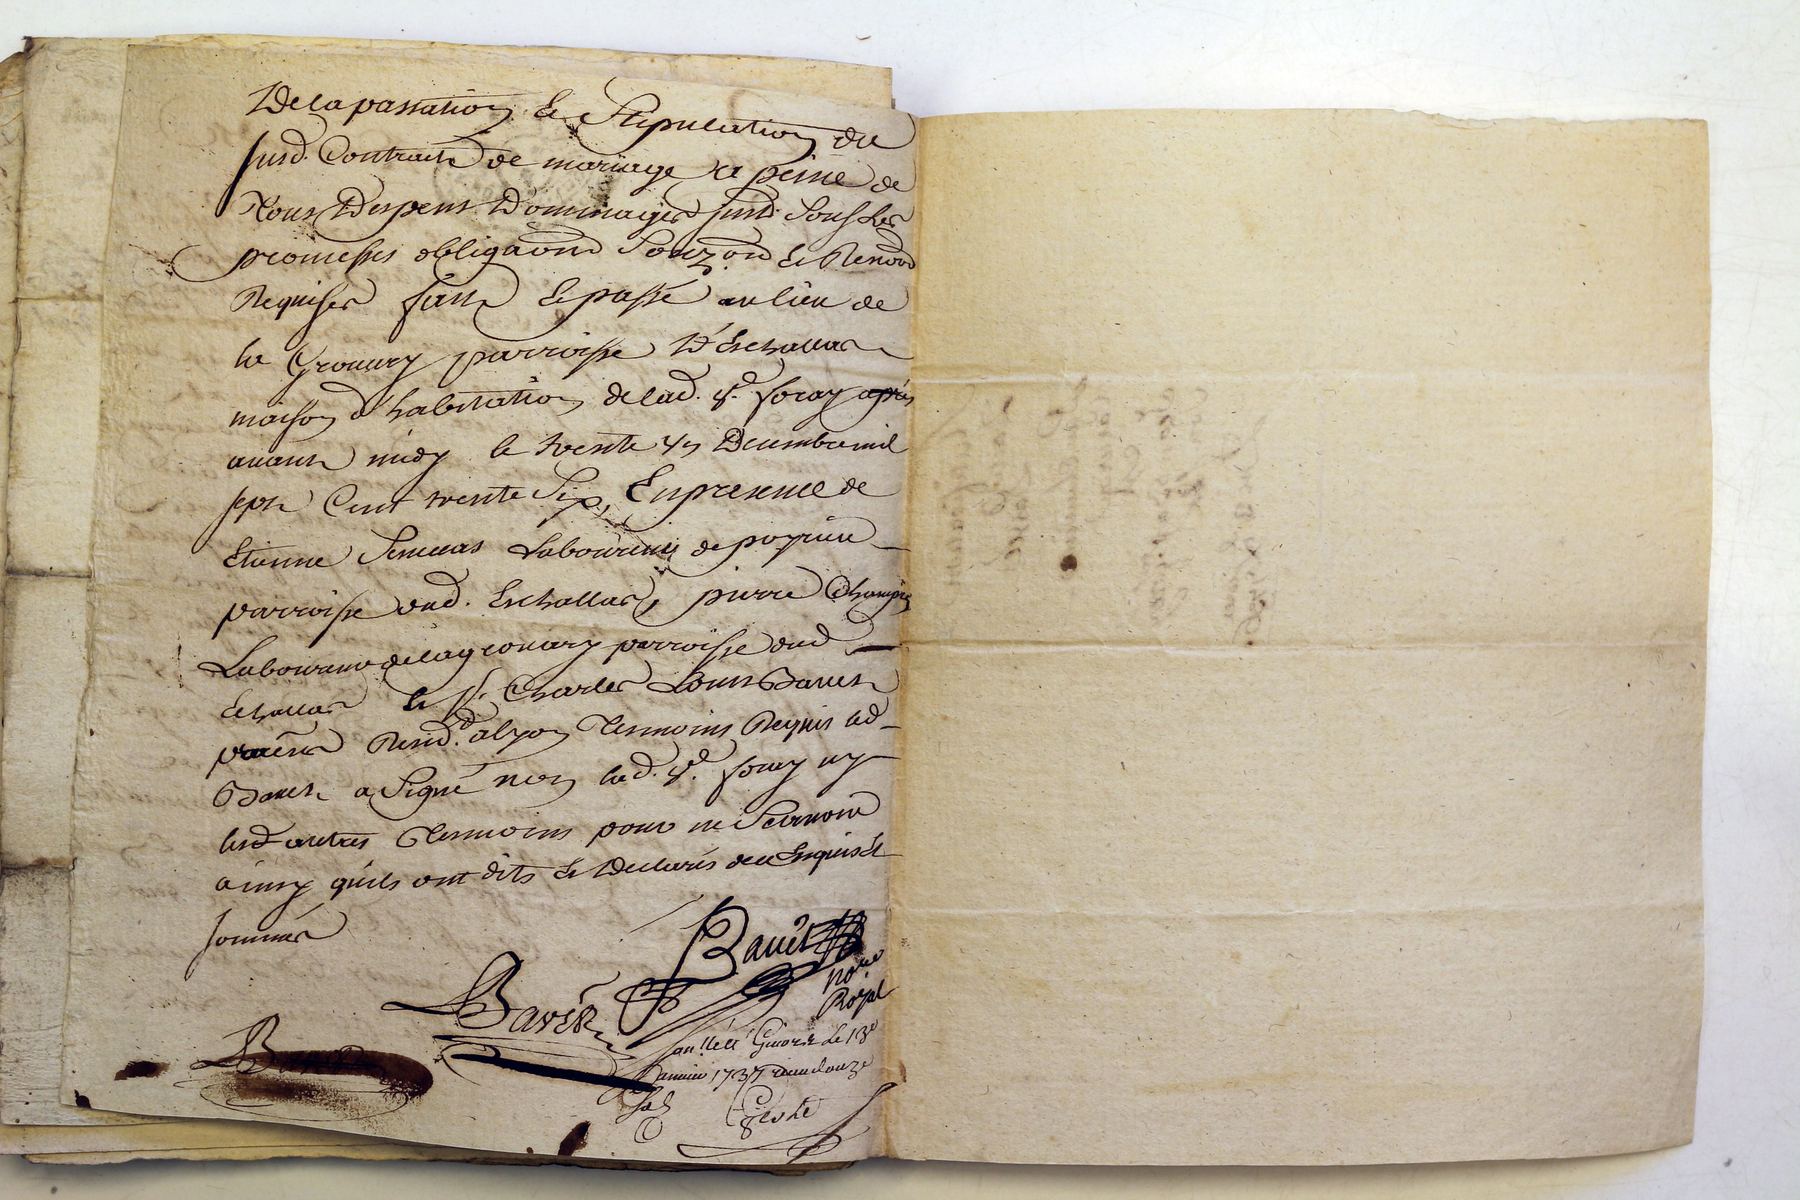 De la passation & Stipulation du
susd. Contract de mariage a peine de
Tous Despens Dommages susd. Sous Les
promesses obligaõns Soub.ons & Renon
Requises fait & passé au lieu de
la Grouary parroisse D'Eschallas
maison d'habitation de lad. d.e foray apres
avant midy le trente un Decembre mil
sept Cent trente Six, En presence de
Etienne Laboureur de
parroisse dud. Eschallas, pierre Champin
Laboureur de la grouary parroisse dud
Echallas & Sr. Charles Louis Bavet
Resid.t a lyon Tesmoins Requis led
Bavet a Signé non lad. d.e foray ny
lesd autres Tesmoins pour ne Scavoir
ainsy quils ont dits & Declarés de ce Enquis &
sommés
Bavet
no.re
Royal
Bavet
a Givors Le 13e
Janvier 1737 douze